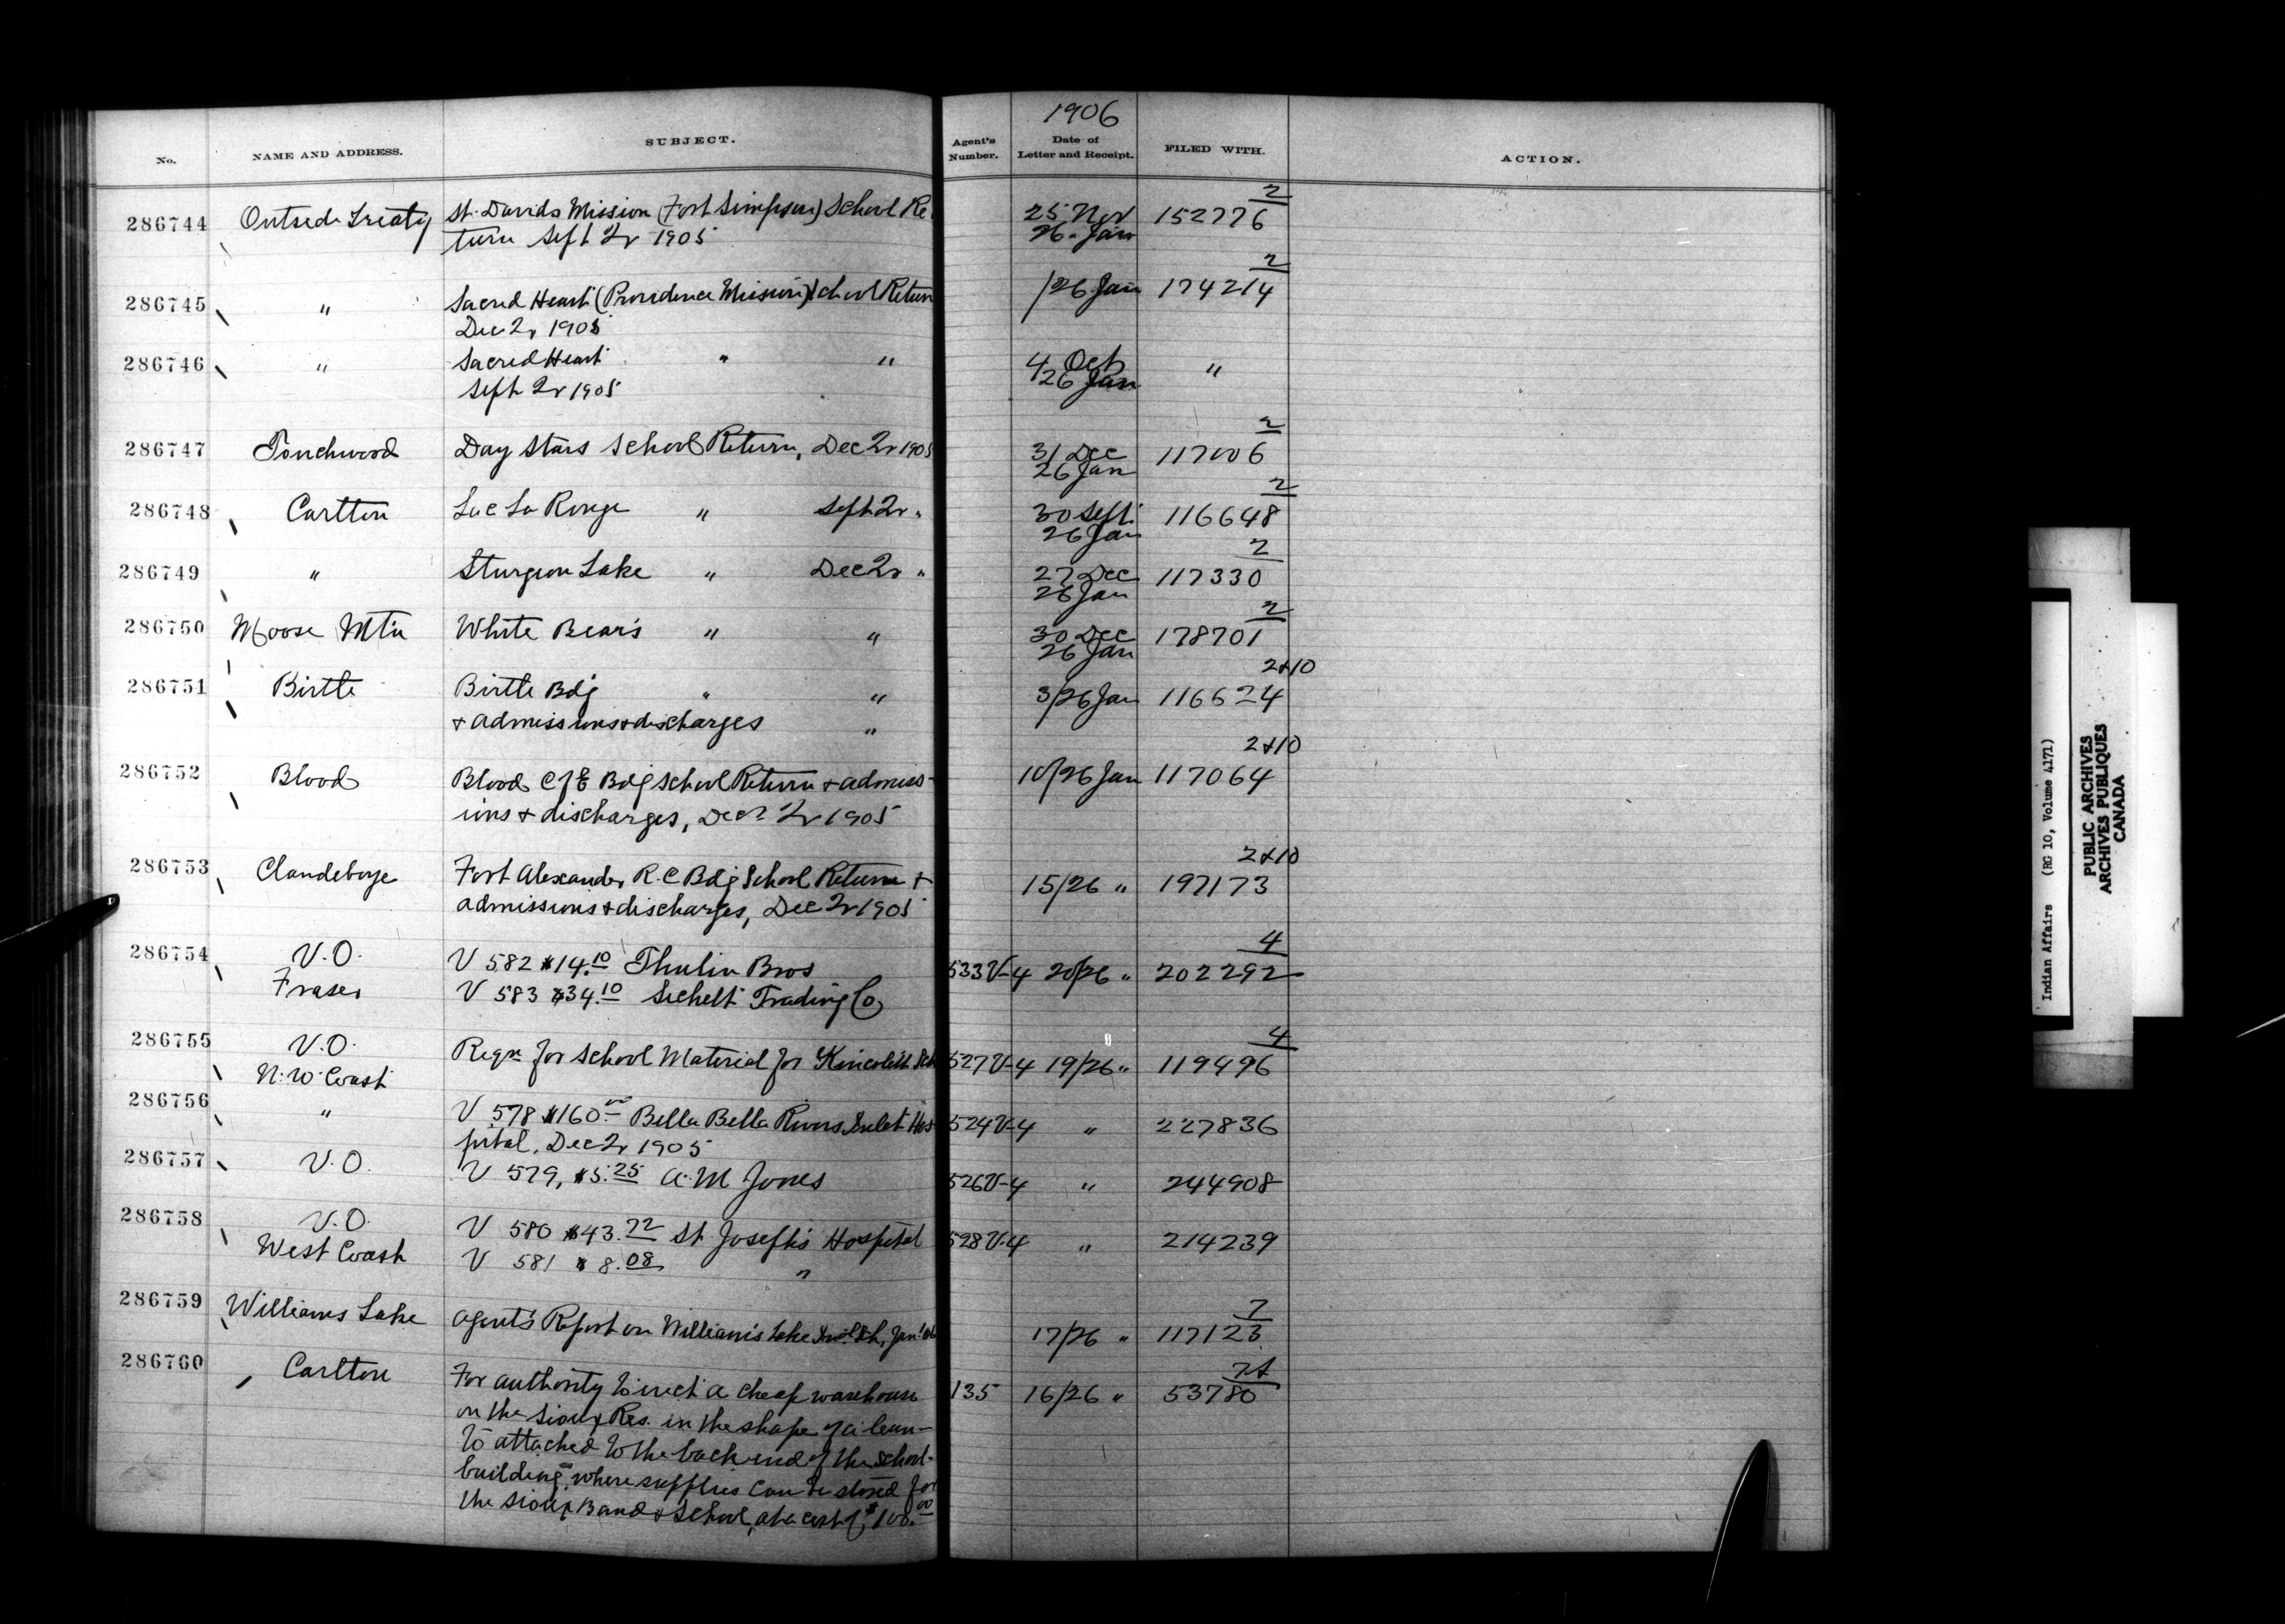 1906
No. NAME AND ADDRESS. SUBJECT. Agent's Number. Date of Letter and Receipt. FILED WITH. ACTION.
2
286744 Outside Treaty St. Davids Mission (Fort Simpson) School Re 25 Nov 152776
turn Sept 2r 1905 26 Jan
2
286745 " Sacred Heart (Providence Mission) School Return /26 Jan 174214
Dec 2r 1905
286746 " Sacred Heart " " 4 Oct "
Sept 2r 1905 26 Jan
2
286747 Touchwood Day Stars School Return, Dec 2r 1905 31 Dec 117006
26 Jan
2
286748 Carlton Lac La Ronge " Sept 2r " 30 Sept. 116648
26 Jan
2
286749 " Sturgeon Lake " Dec 2r " 27 Dec 117330
26 Jan
2
286750 Moose Mtn White Bear's " " 30 Dec 178701
26 Jan
2&10
286751 Birtle Birtle Bdg " " 3/26 Jan 116524
& admissions & discharges "
2&10
286752 Blood Blood C of E Bdg School Return & admiss- 10/26 Jan 117064
ions & discharges, Dec 2r 1905
2&10
286753 Clandeboye Fort Alexander R.C Bdg School Return & 15/26 " 197173
admissions & discharges, Dec 2r 1905
4
286754 V.O. V 582 $14.10 Thulin Bros 533V-4 20/26 " 202292
Fraser V 583 $34.10 Sechelt Trading Co
4
286755 V.O. Reqn for School Material for Kincolith Sch 527V-4 19/26 " 119496
N.W. Coast
286756 " V 578 $160.00 Bella Bella Rivers Inlet Hos 524V-4 " 227836
pital, Dec 2r 1905
286757 V.O. V 579, $5.25 A.M Jones 526V-4 " 244908
286758 V.O. V 580 $43.72 St. Joseph's Hospital 528V-4 " 214239
West Coast V 581 $8.08 "
7
286759 Williams Lake Agent's Report on William's Lake Indl Sch, Jan! 17/26 " 117123
286760 Carlton For authority to erect a cheap warehouse 135 16/26 " 53780
on the Sioux Res. in the shape of a lean-
to attached to the back end of the school-
building, where supplies can be stored for
the Sioux Band & School, at a cost of $100.00
Indian Affairs (RG 10, Volume 4171)
PUBLIC ARCHIVES
ARCHIVES PUBLIQUES
CANADA